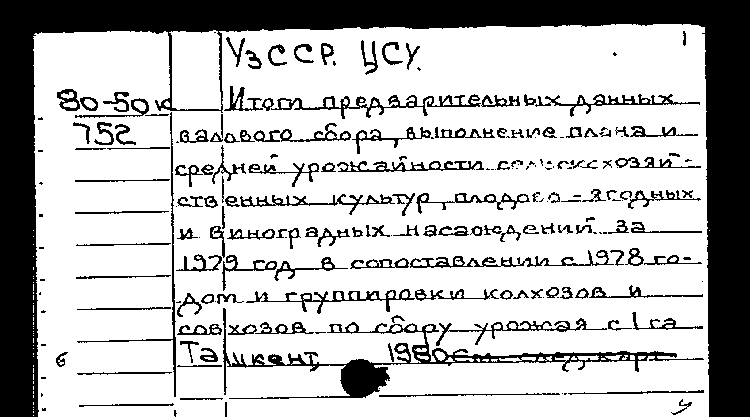 1
УзССР. ЦСУ.
80-50к Итоги предварительных данных
752 валового сбора, выполнение плана и
средней урожайности сельскохозяй-
ственных культур, плодово-ягодных
и виноградных насаждений за
1979 год в сопоставлении с 1978 го-
дом и группировки колхозов и
совхозов по сбору урожая с 1 га
б Ташкент, 1980. См. след. карт.